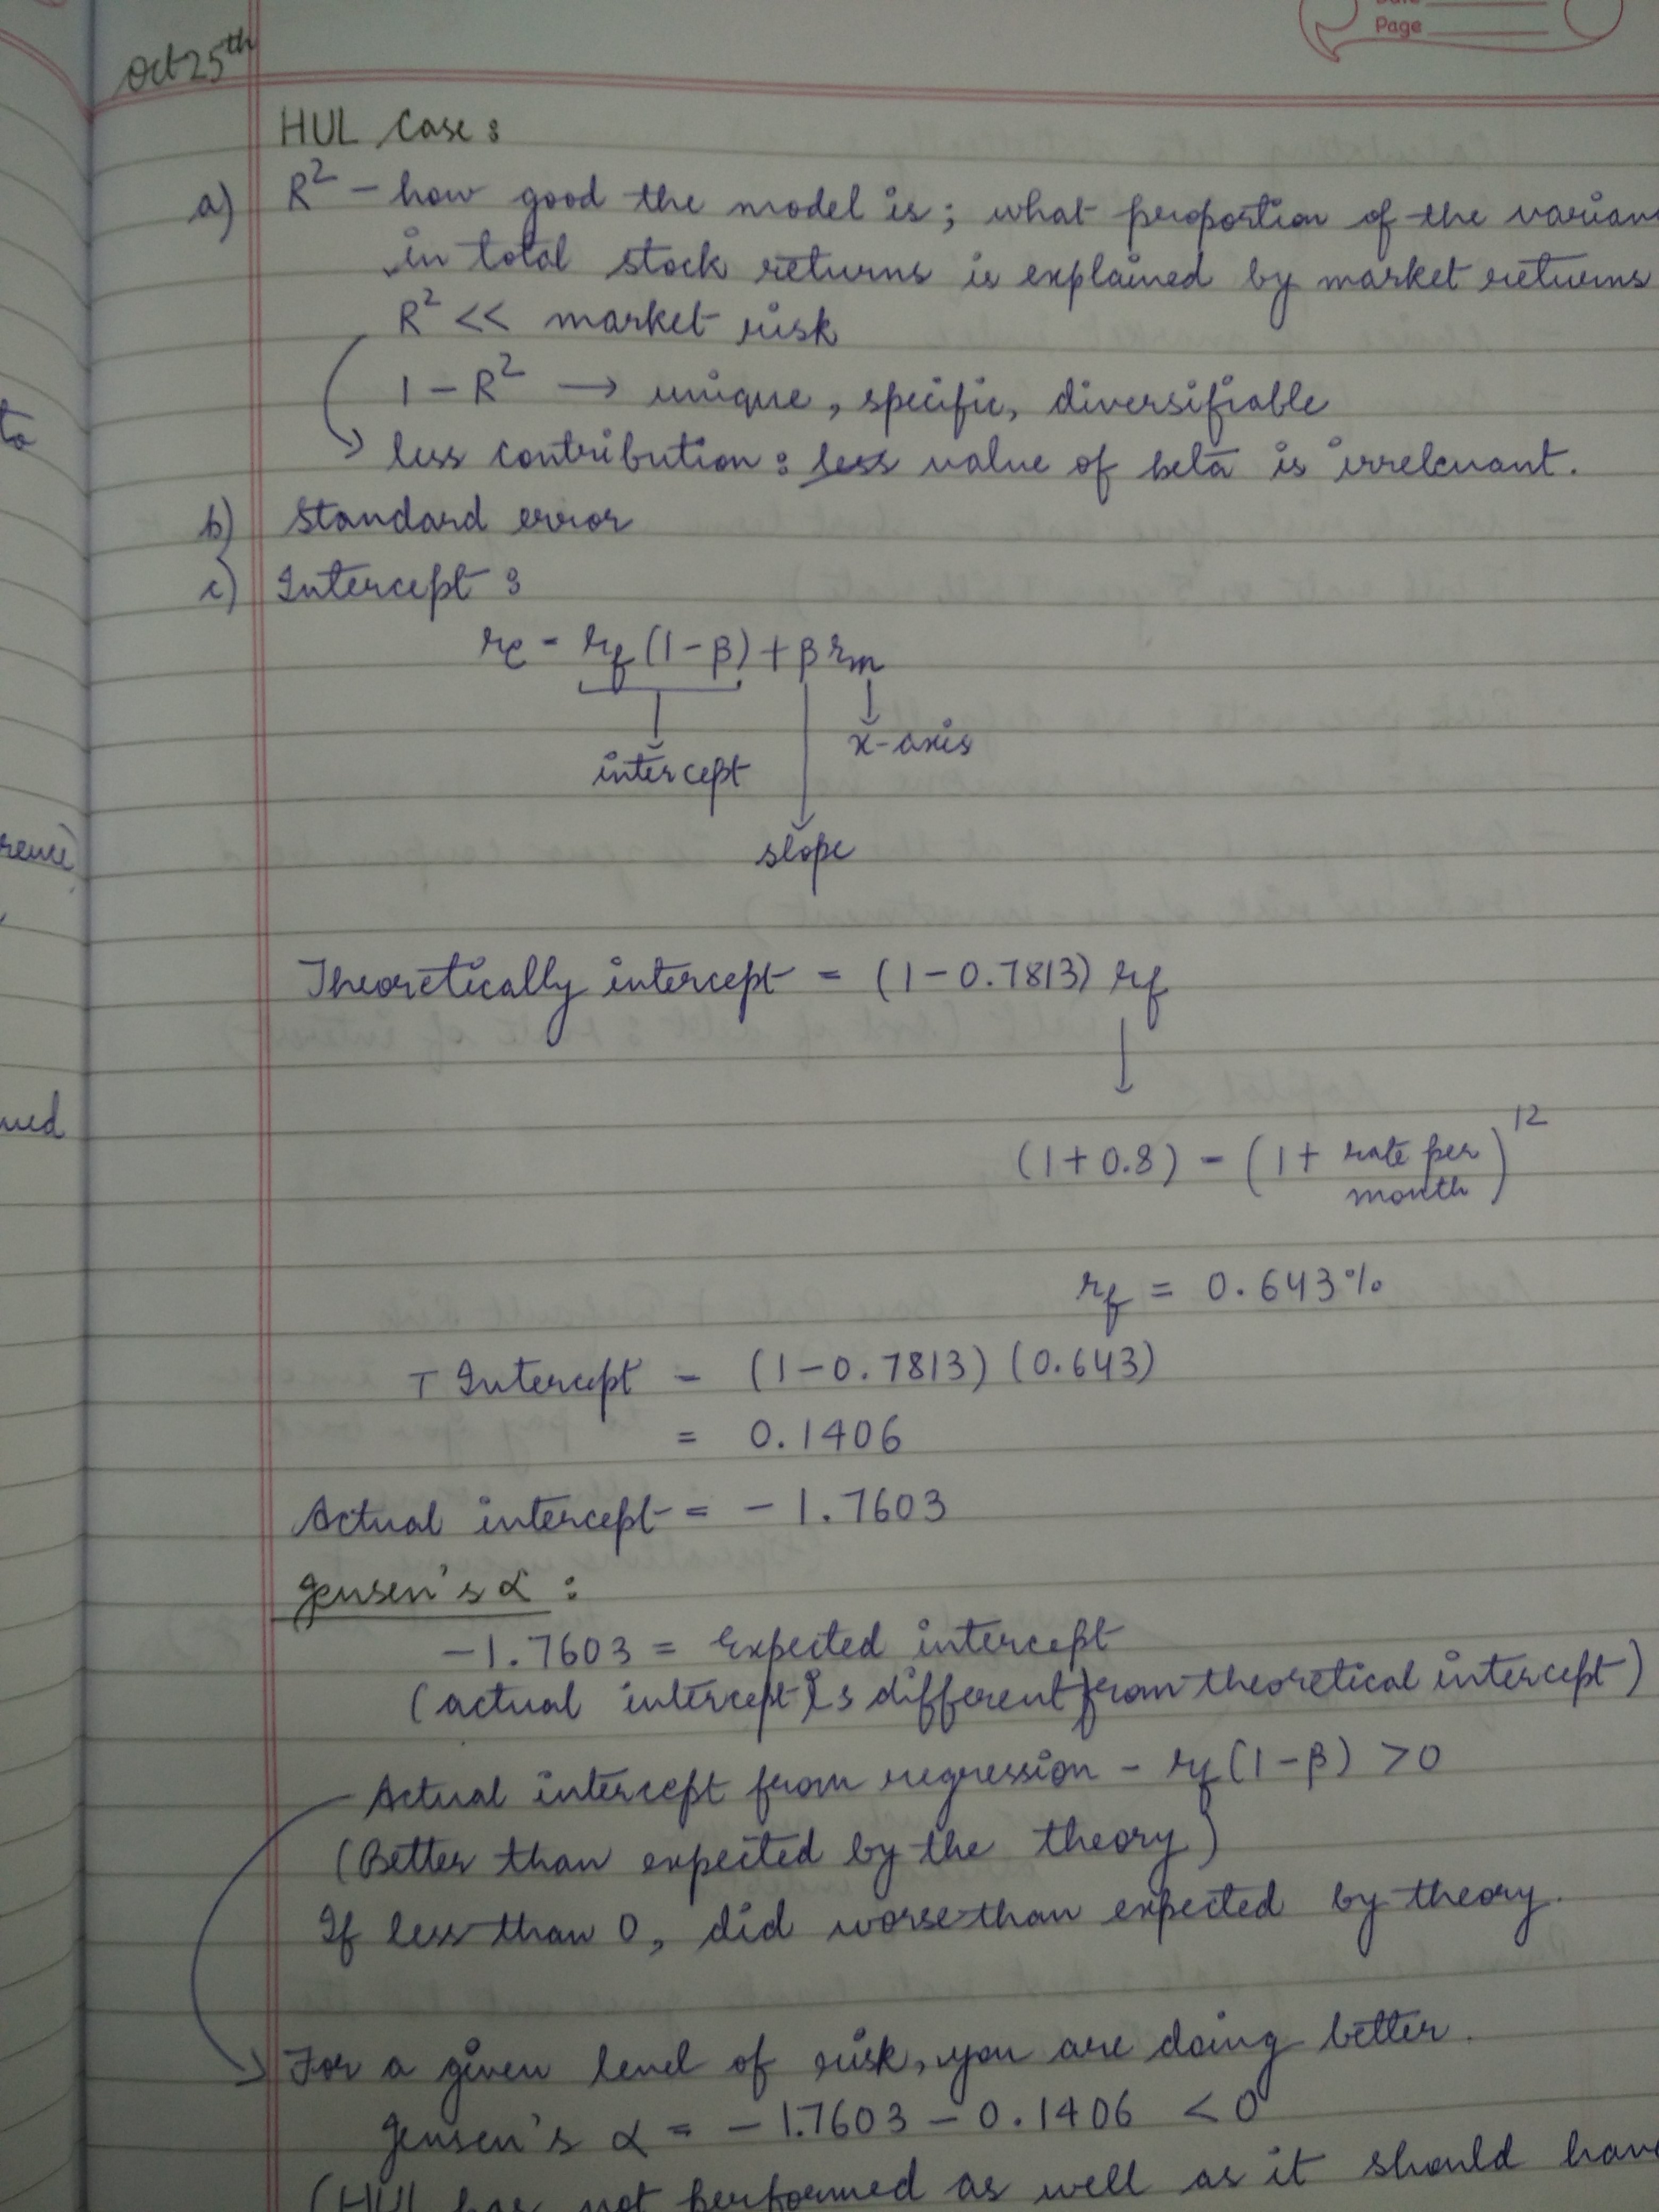 Page
Oct 25th
HUL Case :
a) R² – how good the model is ; what proportion of the varian
in total stock returns is explained by market returns
R² << market risk
1 – R² → unique, specific, diversifiable
less contribution : less value of beta is irrelevant.
b) Standard error
c) Intercept :
re = rf (1-β) + β rm
x-axis
intercept
slope
Theoretically intercept = (1-0.7813) rf
(1+0.8) = (1+ rate per month)¹²
rf = 0.643%
T Intercept = (1-0.7813) (0.643)
= 0.1406
Actual intercept = - 1.7603
Jensen's α :
-1.7603 = Expected intercept
(actual intercept is different from theoretical intercept)
Actual intercept from regression - rf (1-β) >0
(Better than expected by the theory)
If less than 0, did worse than expected by theory.
For a given level of risk, you are doing better.
Jensen's α = - 1.7603 - 0.1406 < 0
(HUL has not performed as well as it should hav